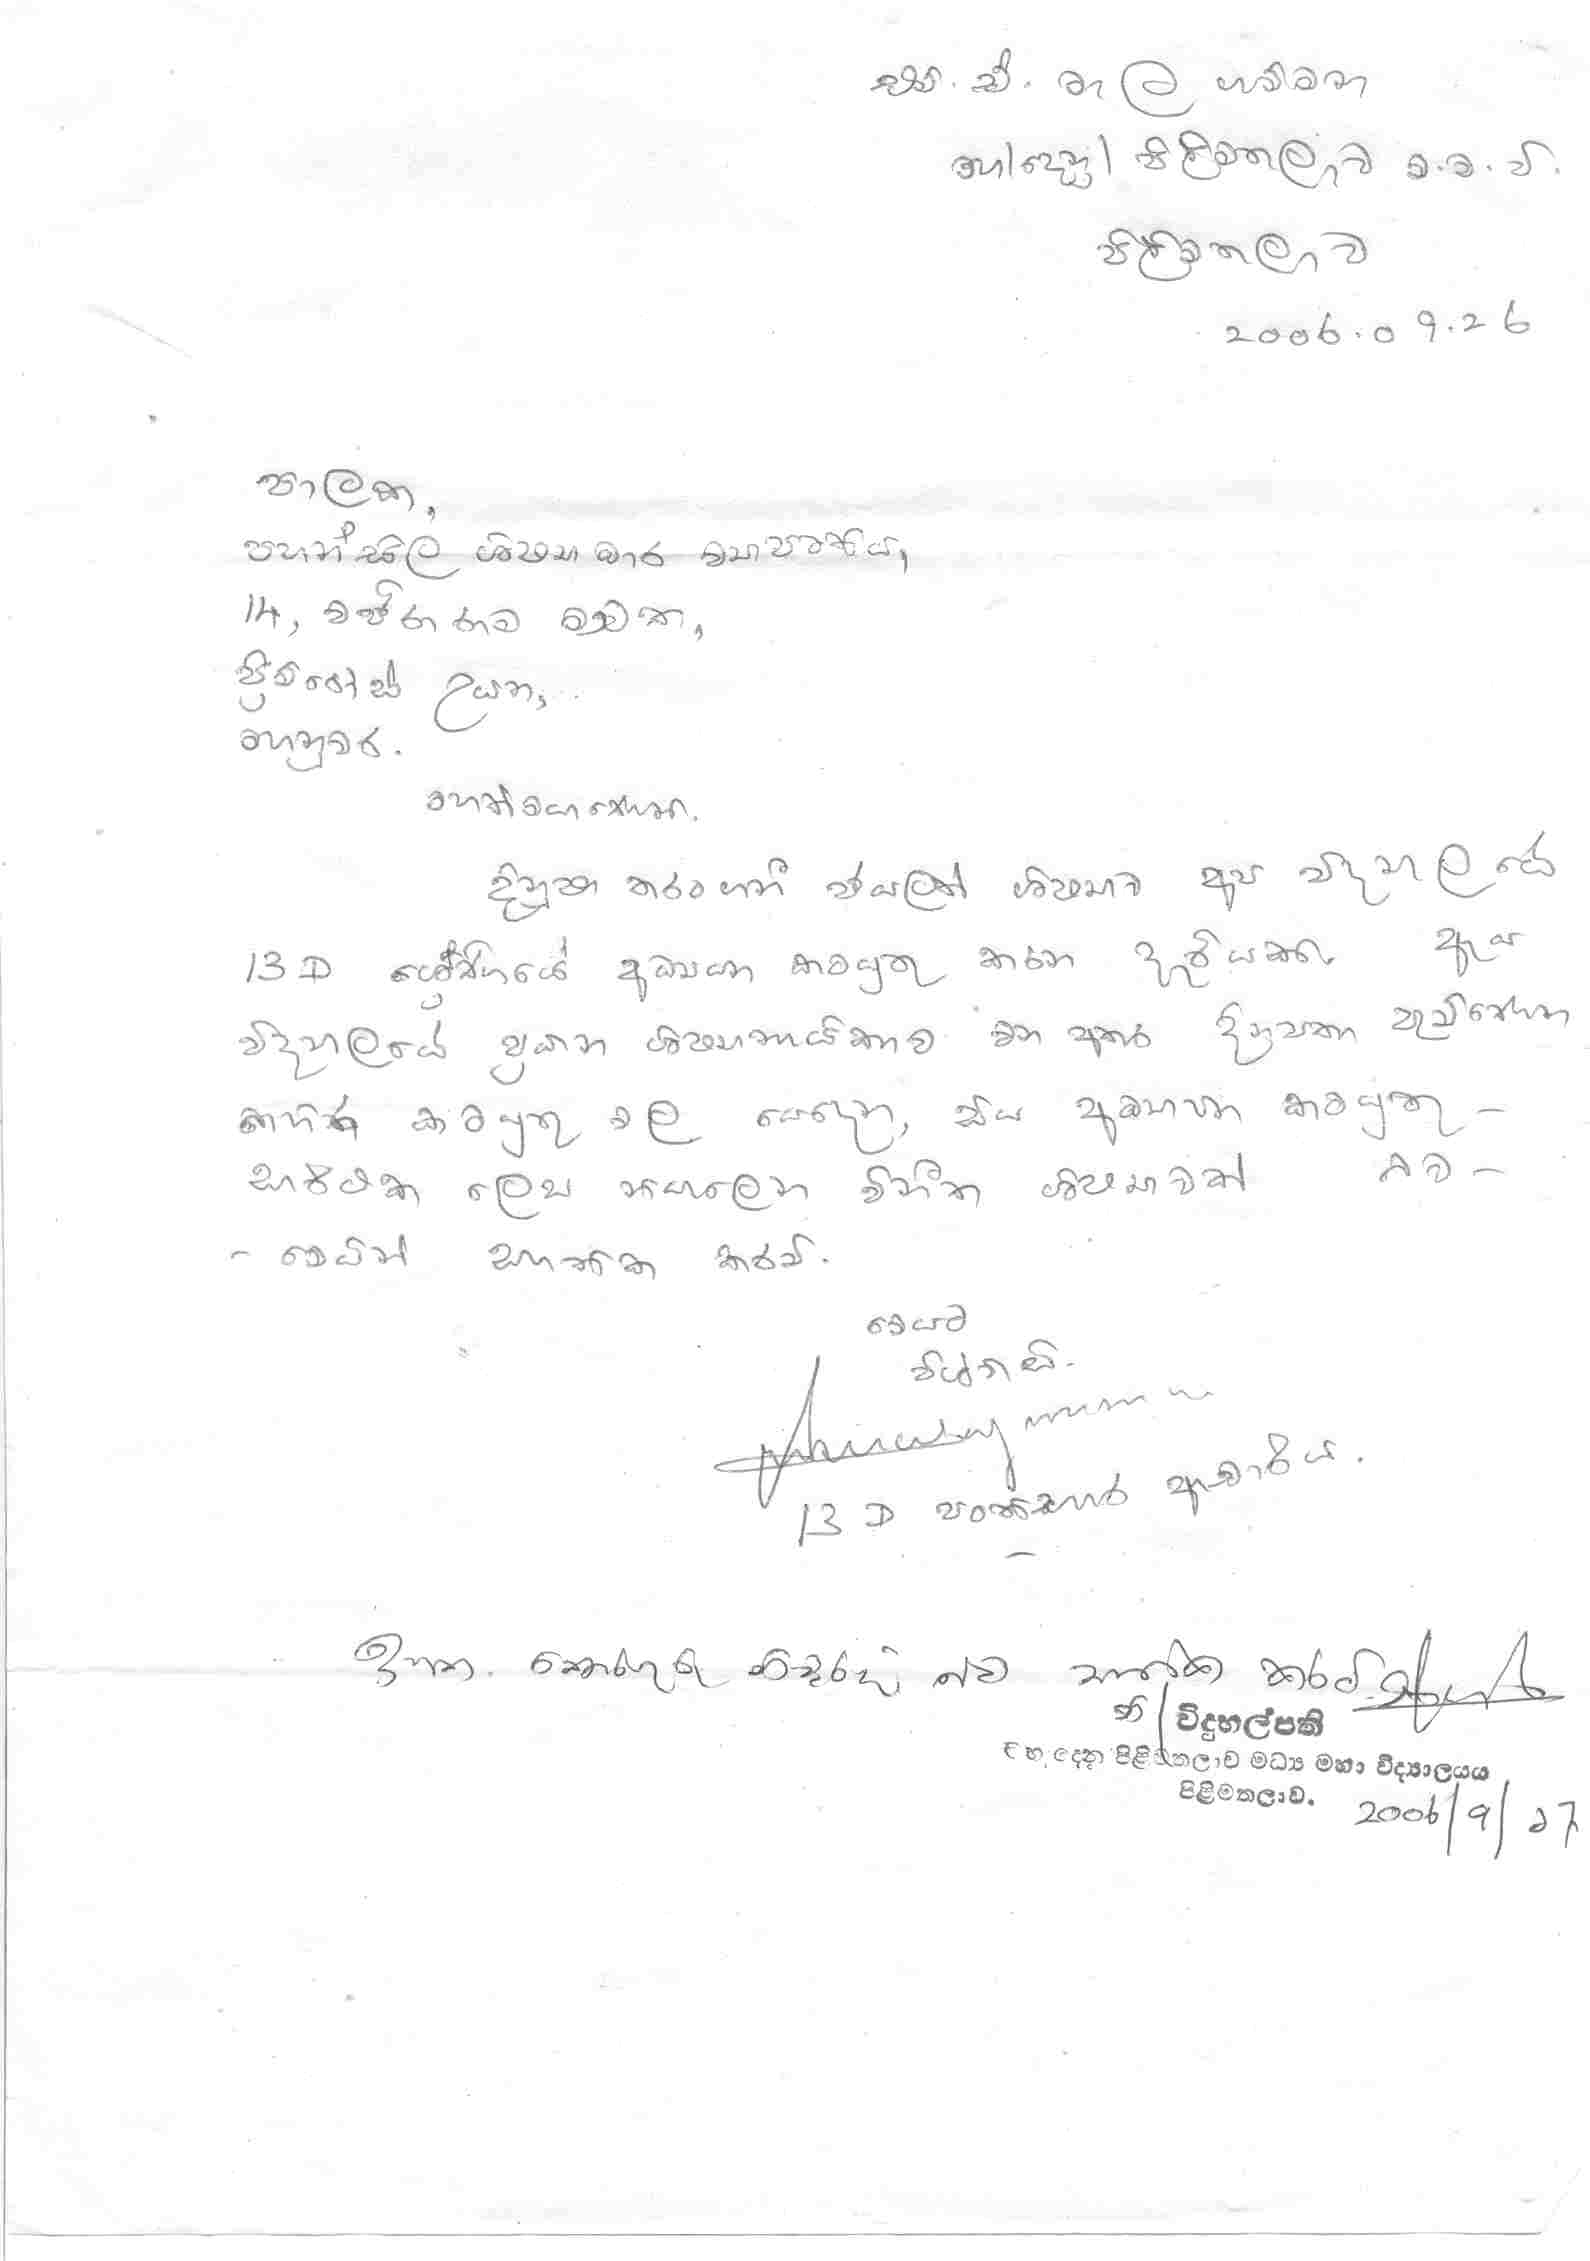 එච්.ඒ. මැලගම්මන
මහ/දෙනු/ පිළිමතලාව ම.ම.වි.
පිළිමතලාව
2006.09.26
පාලක,
පහන්සිල ශිෂ්‍යභාර ව්‍යාපෘතිය,
14, වජිරාරාම මාවත,
ප්‍රිම්රෝස් උයන,
මහනුවර.
මහත්මයාණෙනි.
දිනූෂා තරංගනී ජයලත් ශිෂ්‍යාව අප විද්‍යාලයේ
13 D ශ්‍රේණියේ අධ්‍යයන කටයුතු කරන දැරියකි. ඇය
විද්‍යාලයේ ප්‍රධාන ශිෂ්‍යනායිකාව වන අතර දිනපතා පැමිණෙන
බාහිර කටයුතු වල යෙදෙන, සිය අධ්‍යයන කටයුතු -
සාර්ථක ලෙස කරගෙන විනීත ශිෂ්‍යාවක් බව -
- මෙයින් සහතික කරමි.
මෙයට
විශ්වාසී.
13 D පංතිභාර ආචාරිය.
ඉහත තොරතුරු නිවැරදි බව සහතික කරමි.
නි/ විදුහල්පති
මහ/දෙනු/පිළිමතලාව මධ්‍ය මහා විද්‍යාලයය
පිළිමතලාව.
2006/9/27